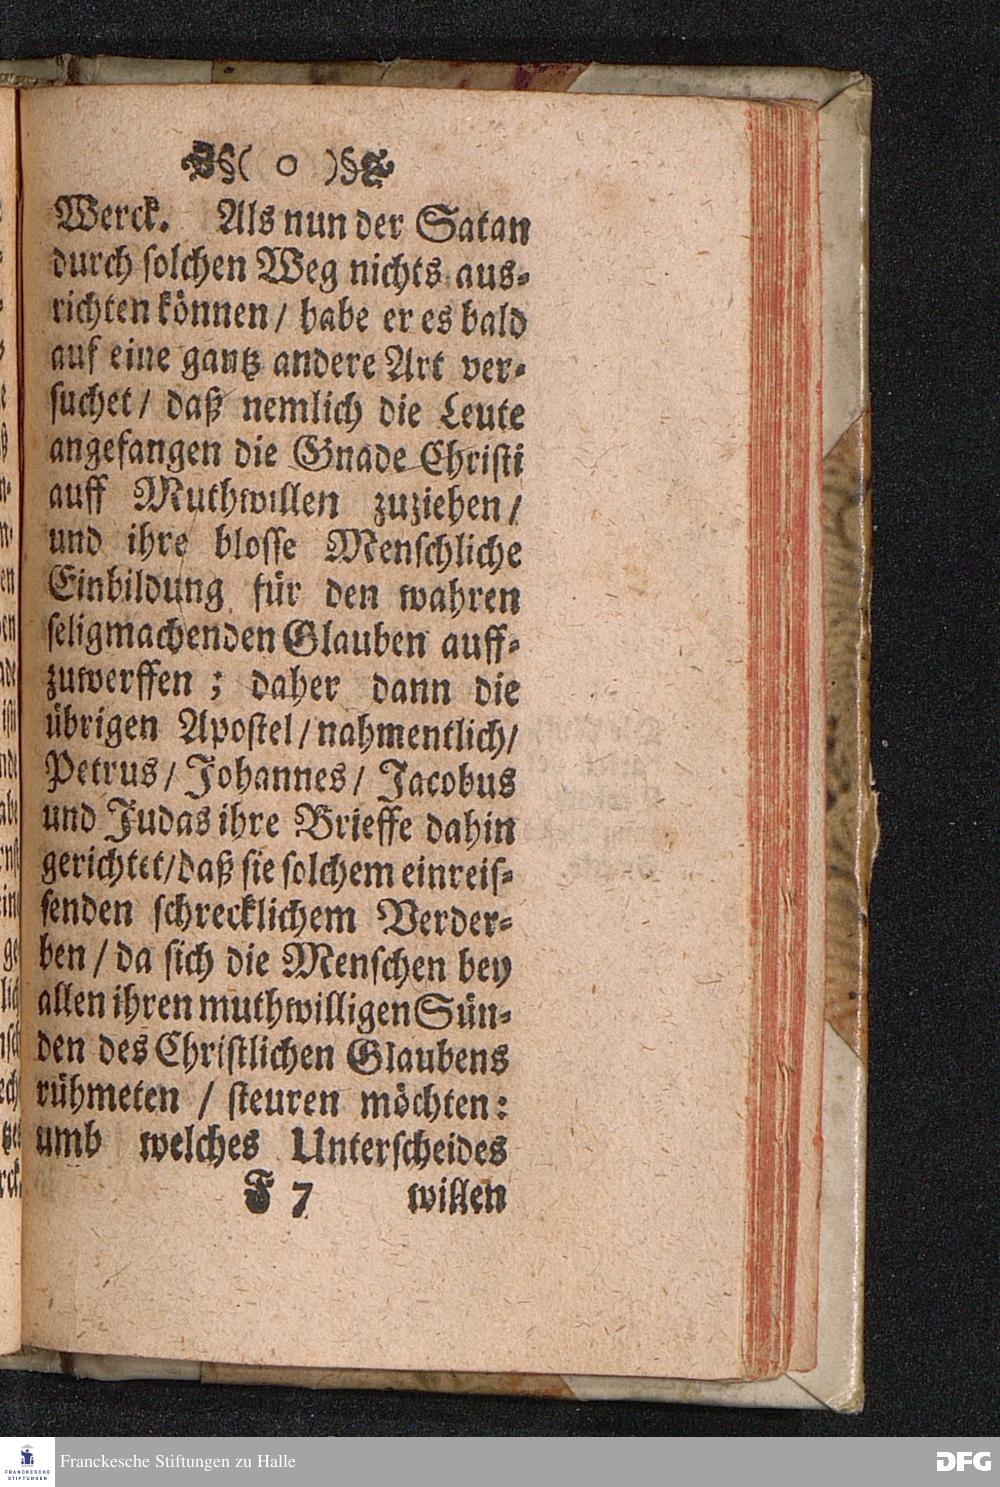 §( o )§
Werck. Als nun der Satan
durch solchen Weg nichts aus-
richten können / habe er es bald
auf eine gantz andere Art ver-
suchet / daß nemlich die Leute
angefangen die Gnade Christi
auff Muthwillen zuziehen /
und ihre blosse Menschliche
Einbildung für den wahren
seligmachenden Glauben auff-
zuwerffen ; daher dann die
übrigen Apostel / nahmentlich /
Petrus / Johannes / Jacobus
und Judas ihre Brieffe dahin
gerichtet / daß sie solchem einreis-
senden schrecklichem Verder-
ben / da sich die Menschen bey
allen ihren muthwilligen Sün-
den des Christlichen Glaubens
rühmeten / steuren möchten:
umb welches Unterscheides
F 7 willen
FRANCKESCHE
STIFTUNGEN
Franckesche Stiftungen zu Halle
DFG